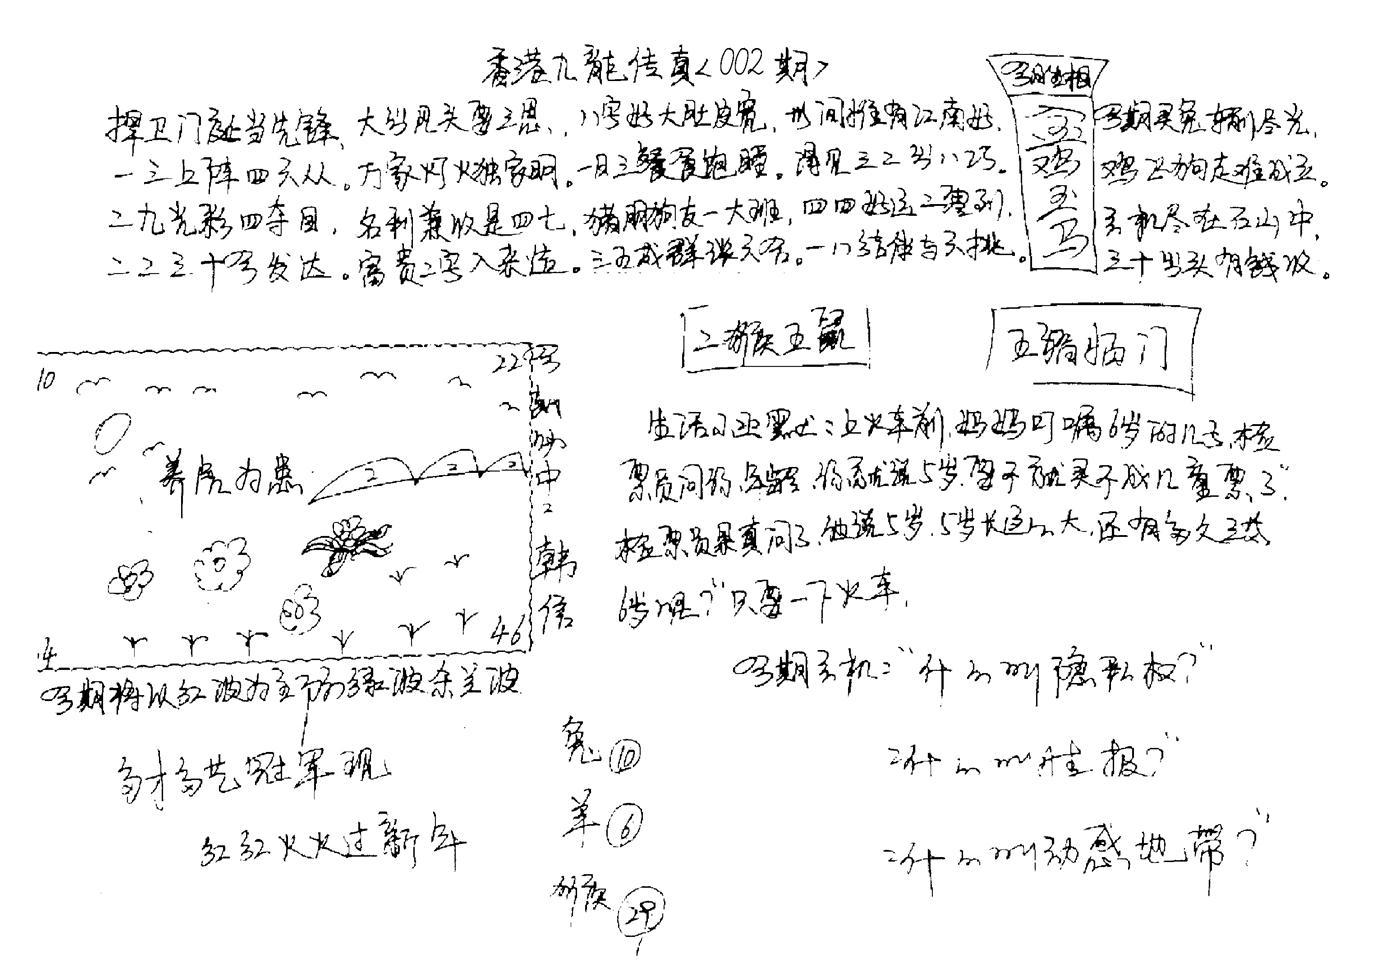 香港九龍传真<002期>
捍卫门户当先锋、大公见头要三思、八字好大肚皮宽，世间惟有江南好，
一三上阵四六从。万家灯火独家明。一日三餐食饱睡。得见三二到八巧。
二九光彩四夺目，名利兼收是四七，猪朋狗友一大班，四四好运二要到，
二二三十今发达。富贵二字入来。三五成群谈天。一八结伴与天
今期生相
金
鸡
玉
马
今期买兔输尽光，
鸡飞狗走难成立。
玄机尽在石山中，
三十出头有钱收。
二猴五鼠
五福临门
10
22
养虎为患
2
2
2
4
46
今期妙中：韩信
今期将以红波为主，防绿波杀兰波
多才多艺冠军现
红红火火过新年
兔 10
羊 6
猴 29
生活小：上火车前，妈妈叮嘱6岁的儿子，检
票员问你年龄，你就说5岁，要不就买不成儿童票了"
检票员果真问了，他说5岁，5岁长这么大，还有多久
6岁呢？"只要一下火车，
今期玄机："什么叫隐私权？"
：什么叫生报？"
：什么叫动感地带？"